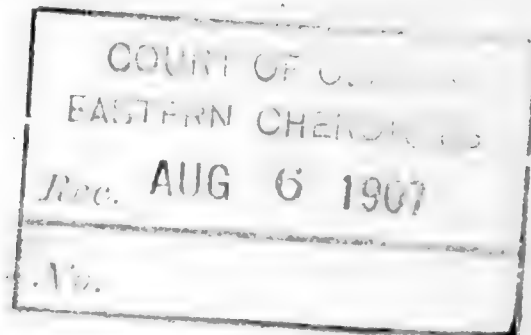 COURT OF
EASTERN CHEROKEES
Rec. AUG 6 1907
No.